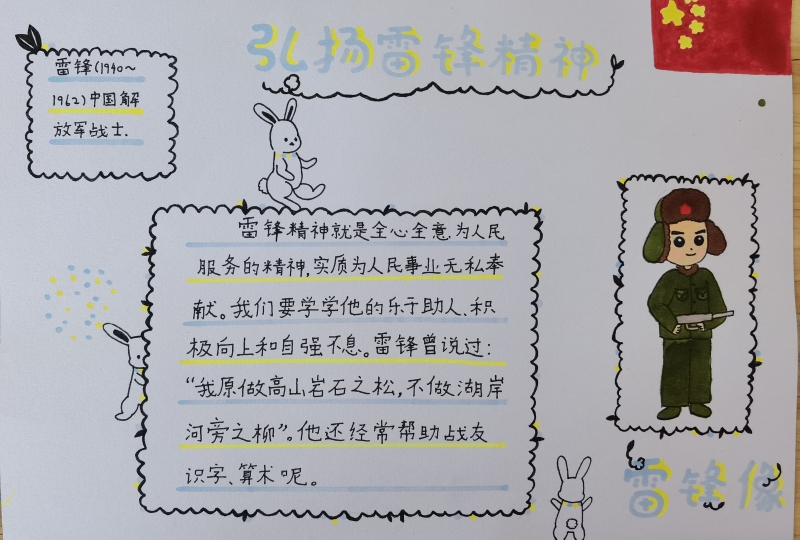 弘扬雷锋精神
雷锋(1940~
1962)中国解
放军战士.
雷锋精神就是全心全意为人民
服务的精神,实质为人民事业无私奉
献。我们要学学他的乐于助人、积
极向上和自强不息。雷锋曾说过:
“我原做高山岩石之松,不做湖岸
河旁之柳”。他还经常帮助战友
识字、算术呢。
雷锋像